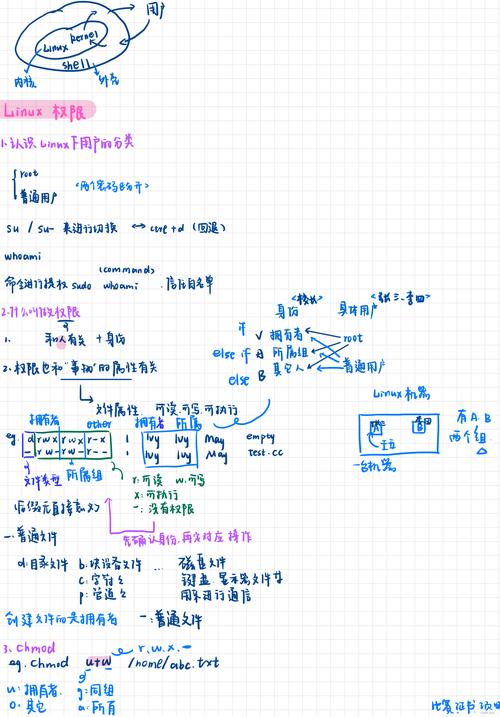 用户
Linux kernel
shell
内核 外壳
Linux 权限
1.认识 Linux下用户的分类
root
普通用户
<两个密码分开>
su / su- 来进行切换 ↔ ctrl+d (回退)
whoami
(command)
命令进行提权 sudo whoami 信任白名单
2.什么叫做权限
1. 和人有关 + 身份
身份 <校长> 具体用户 <张三、李四>
if 拥有者 root
else if 所属组
else 其它人 普通用户
2.权限也和"事物"的属性有关
文件属性. 可读.可写.可执行
Linux 机器
有A.B
两个组.
一台机器
拥有者 other 拥有者 所属
eg. d rwx rwx r-x 1 lvy lvy May empty
- rw- rw- r-- 1 lvy lvy May test.cc
文件类型 所属组
r:可读 w.可写
x:可执行
-:没有权限
先确认身份,再来对应操作
-:普通文件
d:目录文件 b.块设备文件 … 磁盘文件
c:字符〃 键盘.显示器文件
p:管道〃 用来进行通信
创建文件的是拥有者 -:普通文件
3. chmod
r.w.x.-
eg. chmod u+w /home/abc.txt
u:拥有者. g:同组
o.其它 a:所有